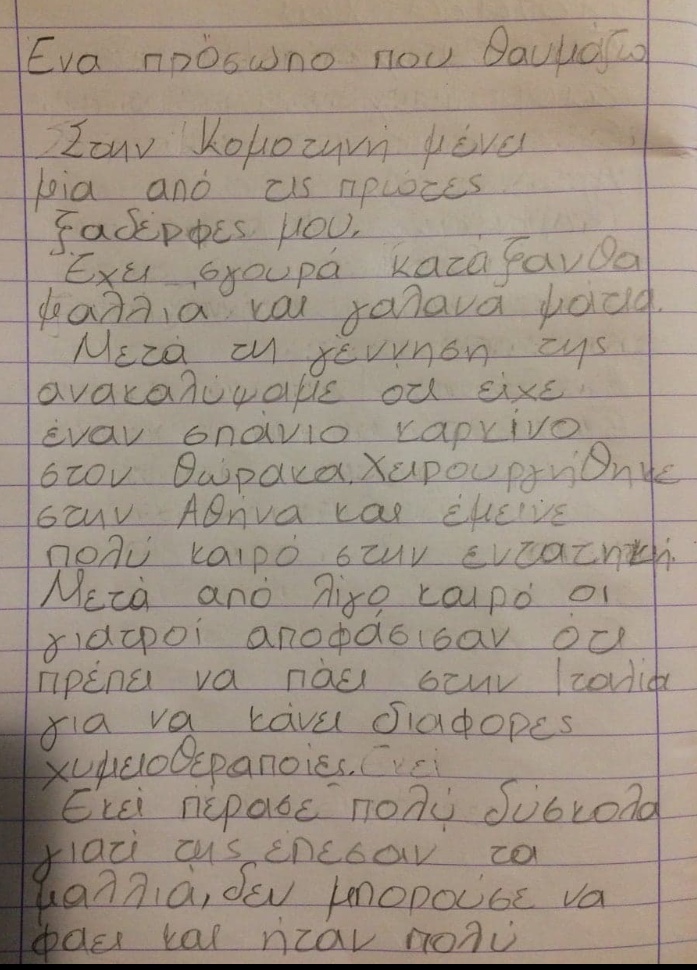 Ενα πρόσωπο που θαυμάζω
Στην Κομοτηνή μένει
μία από τις πρώτες
ξαδέρφες μου.
Έχει σγουρά κατάξανθα
μαλλιά και γαλανά μάτια.
Μετά τη γέννηση της
ανακαλύψαμε ότι είχε
έναν σπάνιο καρκίνο
στον θώρακα. Χειρουργήθηκε
στην Αθήνα και έμεινε
πολύ καιρό στην εντατητική.
Μετά από λίγο καιρό οι
γιατροί αποφάσισαν ότι
πρέπει να πάει στην Ιταλία
για να κάνει διαφορες
χυμειοθεραποίες.
Εκεί πέρασε πολύ δύσκολα
γιατί της έπεσαν τα
μαλλιά, δεν μπορούσε να
φαει και ήταν πολύ